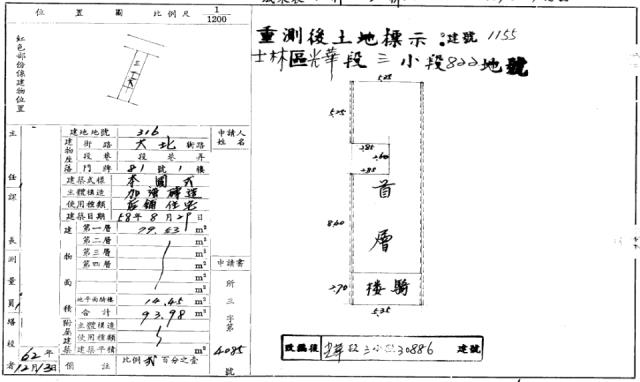 位置圖 比例尺 1/1200
紅色部份係建物位置
重測後土地標示:建號 1155
士林區光華段三小段822地號
建地地號 316
申請人姓名
建物座落
街路 大北 街路
段巷 段 巷 弄
門牌 81 號 1 樓
建築式樣 本國式
主體構造 加強磚造
使用種類 店鋪住宅
建築日期 58年8月29日
建物面積
第一層 79.53 m²
第二層 m²
第三層 m²
第四層 m²
m²
m²
地平面騎樓 14.45 m²
合計 93.98 m²
附屬建築
主體構造
使用種類
建築面積 m²
備註 比例 貳 百分之壹
主任
課長
測量員
繕校者
62年12月13日
申請書
所三字第
4085
號
5.25
5.25
2.85
2.60
2.85
8.60
2.70
5.35
首層
騎樓
改編後 光華段三小段30886 建號